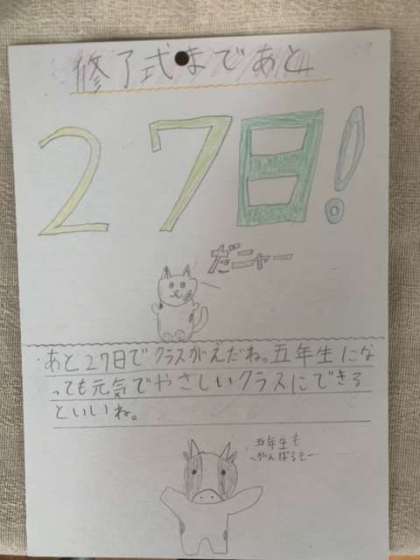 修了式まであと
27日!
だニャー
あと27日でクラスがえだね。五年生にな
っても元気でやさしいクラスにできる
といいね。
五年生も
がんばるモー